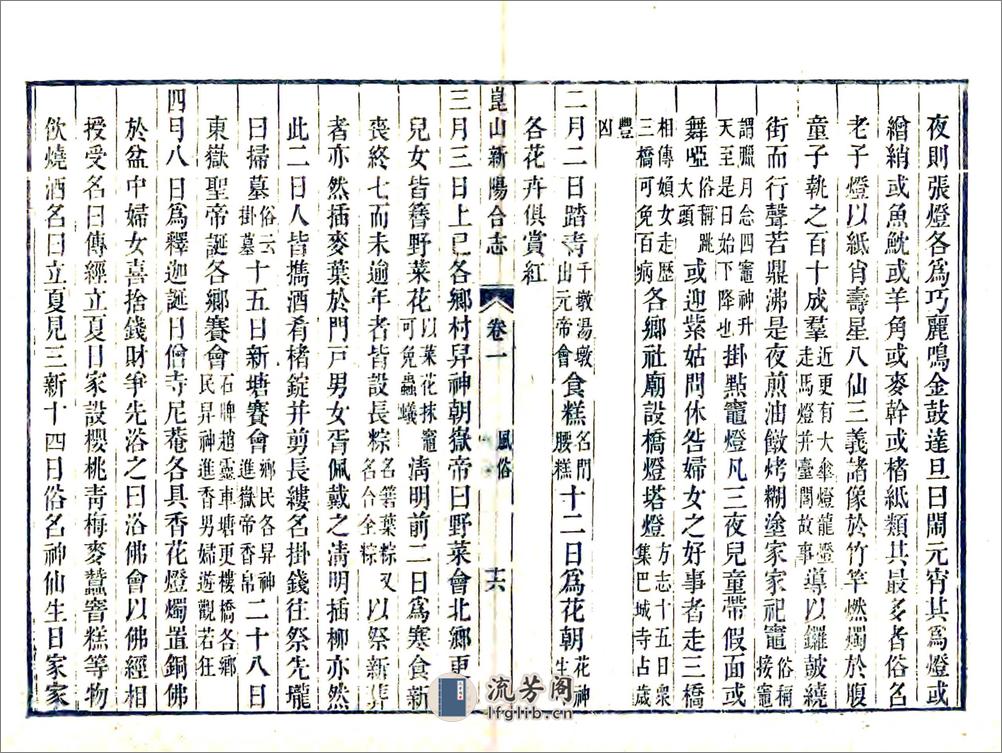 夜則張燈各爲巧麗鳴金鼓達旦曰鬧元宵其爲燈或
繪綃或魚魫或羊角或麥幹或楮紙類其最多者俗名
老子燈以紙肖壽星八仙三義諸像於竹竿燃燭於腹
童子執之百十成羣近更有大傘燈龍燈走馬燈并臺閣故事導以鑼皷繞
街而行聲若鼎沸是夜煎油䭔烤糊塗家家祀竈俗稱接竈
謂臘月念四竈神升天至是日始下降也掛點竈燈凡三夜兒童帶假面或
舞啞俗稱跳大頭或迎紫姑問休咎婦女之好事者走三橋
相傳婦女走歷三橋可免百病各鄉社廟設橋燈塔燈方志十五日衆集巴城寺占歲
豐凶
二月二日踏青千墩湯墩山元帝會食糕名閉腰糕十二日爲花朝花神生
各花卉俱賞紅
崑山新陽合志
卷一
風俗
十六
三月三日上巳各鄉村舁神朝嶽帝曰野菜會北鄉更
兒女皆簪野菜花以菜花抹竈可免蟲蟻凊明前二日爲寒食新
喪終七而未逾年者皆設長粽名箬葉粽又名合全粽以祭新弄
者亦然插麥葉於門戸男女胥佩戴之凊明插柳亦然
此二日人皆擕酒肴楮錠并剪長縷名掛錢往祭先壠
曰掃墓俗云掛墓十五日新塘賽會鄉民各舁神進嶽帝香帛二十八日
東嶽聖帝誕各鄉賽會石牌趙靈車塘更樓橋各鄉民舁神進香男婦遊觀若狂
四月八日爲釋迦誕日僧寺尼菴各具香花燈燭置銅佛
於盆中婦女喜捨錢財爭先浴之曰浴佛會以佛經相
授受名曰傳經立夏日家設櫻桃靑梅麥蠶窨糕等物
飲燒酒名曰立夏見三新十四日俗名神仙生日家家
流芳阁
lfglib.com